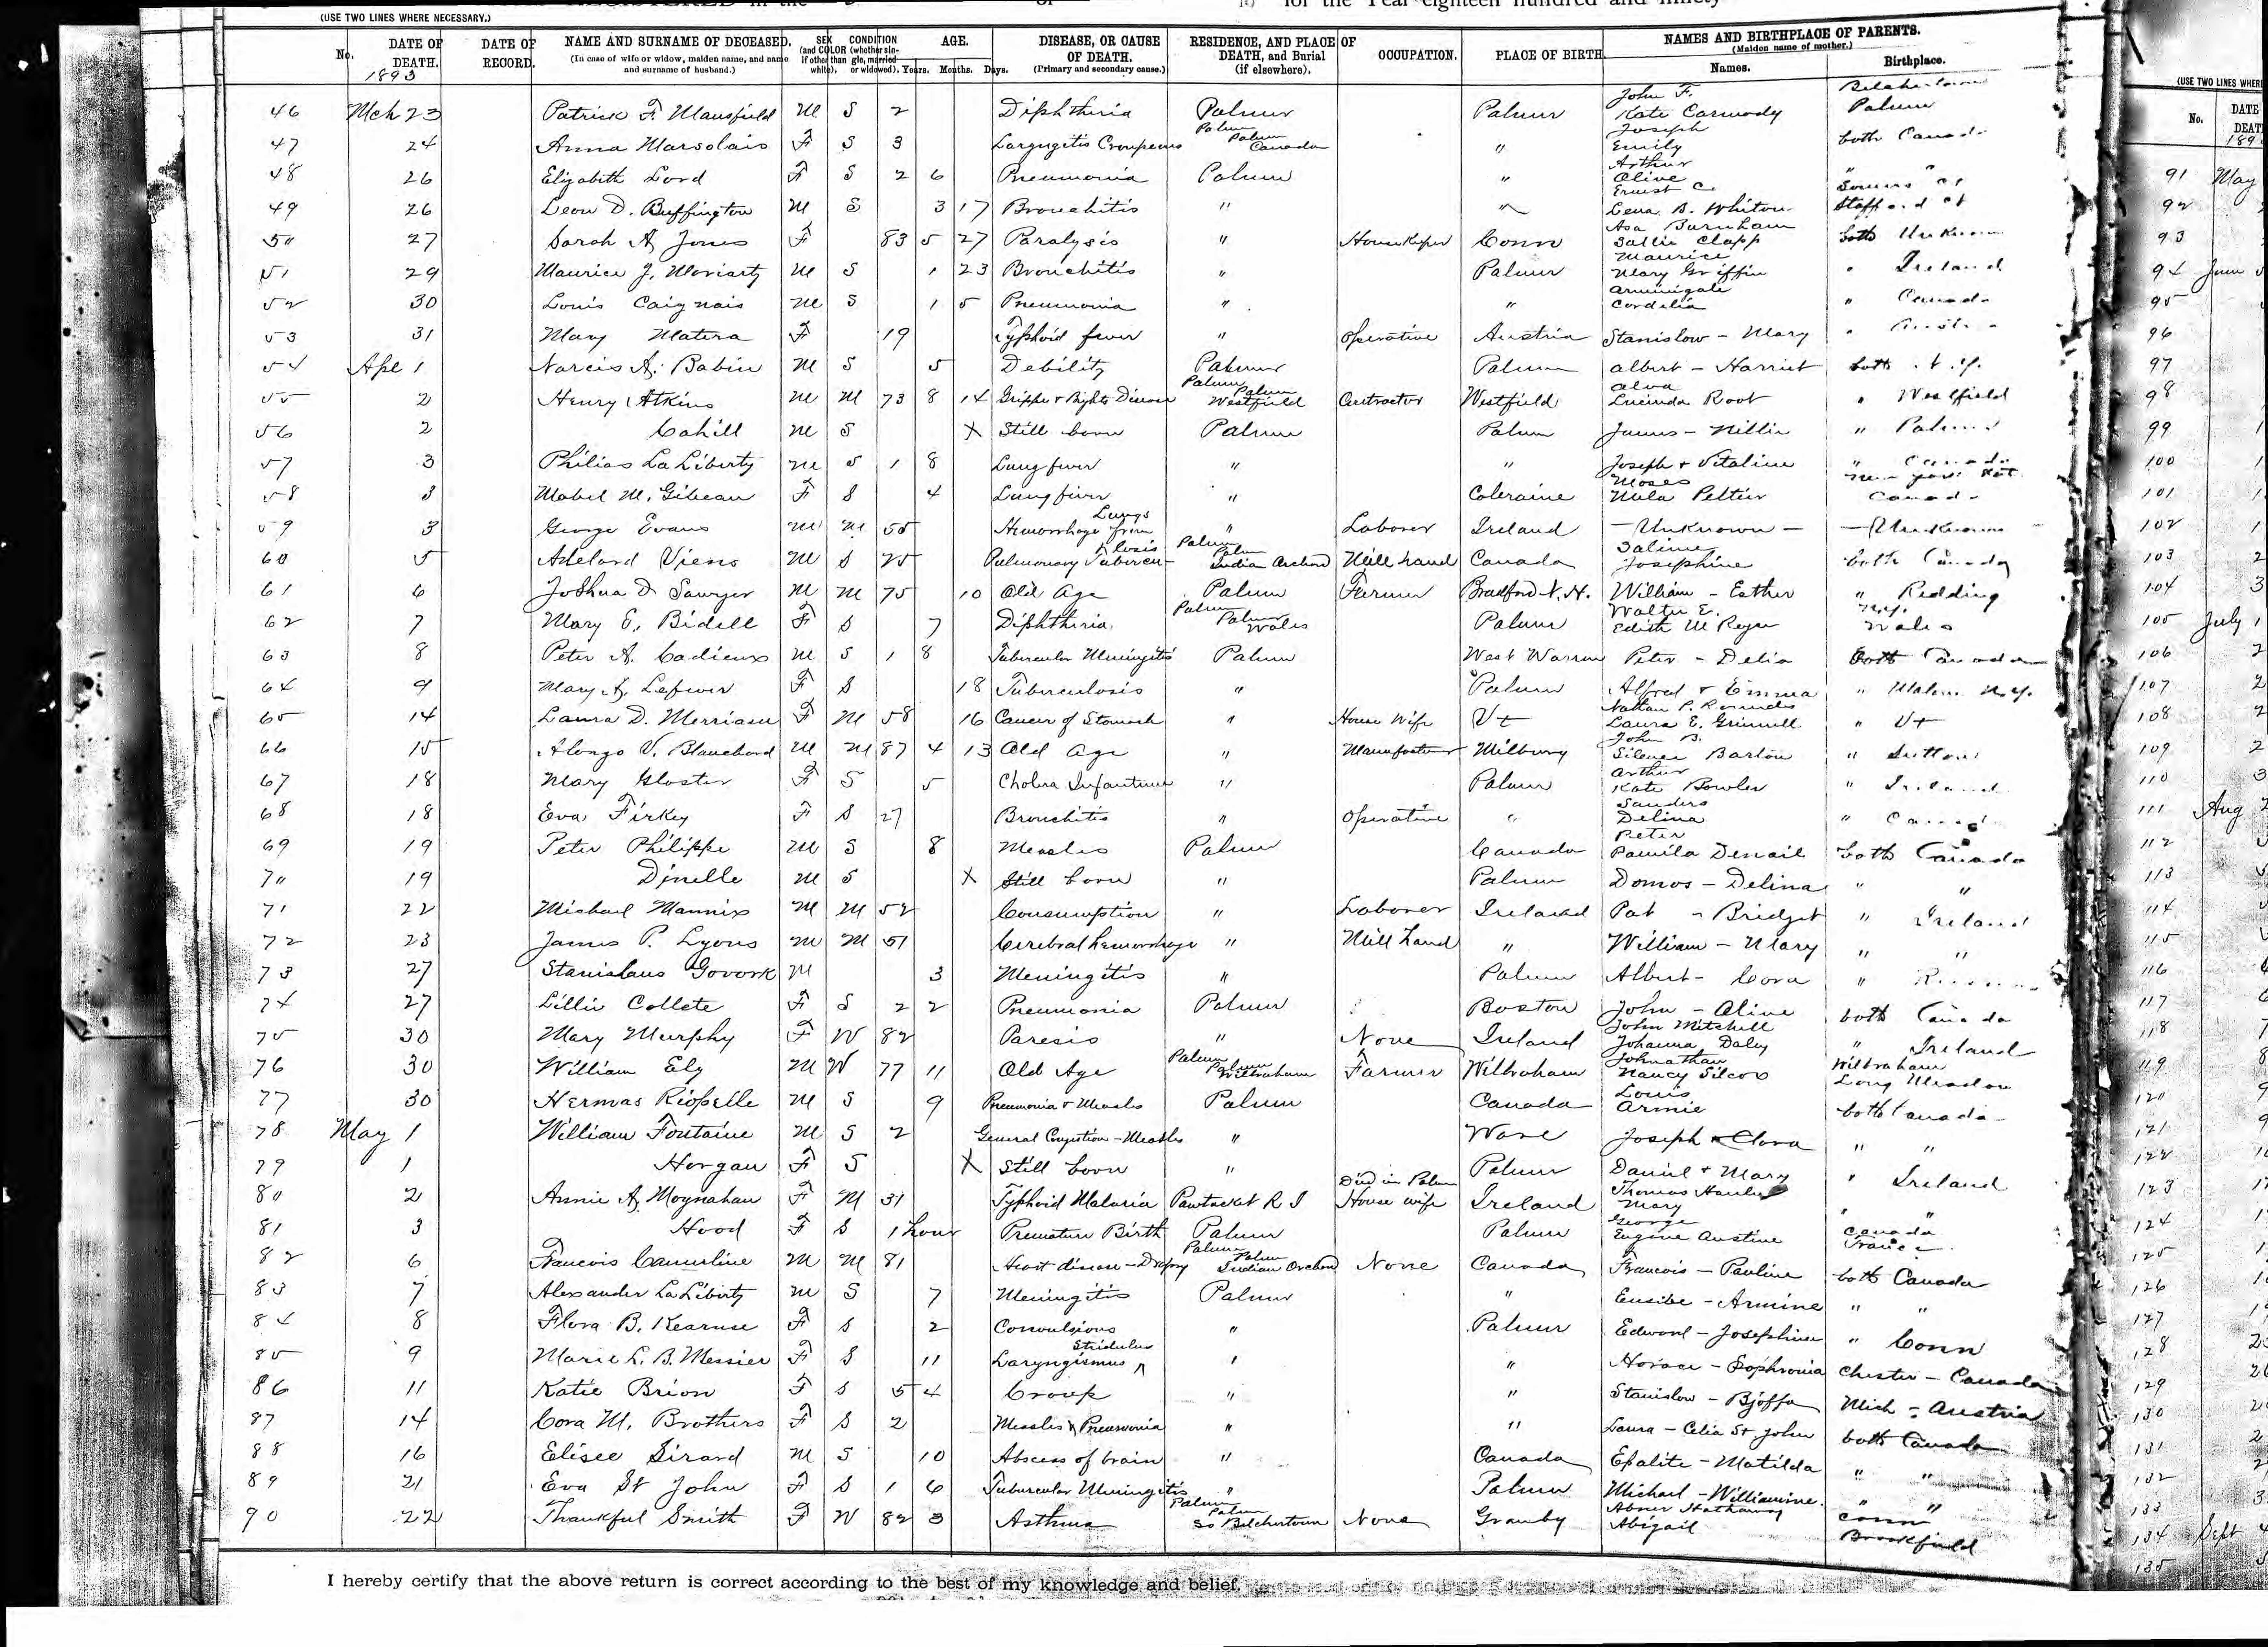 REGISTERED in the of for the Year eighteen hundred and ninety
(USE TWO LINES WHERE NECESSARY.)
No. DATE OF DEATH. 1893 DATE OF RECORD. NAME AND SURNAME OF DECEASED. (In case of wife or widow, maiden name, and name and surname of husband.) SEX (and COLOR if other than white). CONDITION (whether single, married or widowed). AGE. Years. Months. Days. DISEASE, OR CAUSE OF DEATH. (Primary and secondary cause.) RESIDENCE, AND PLACE OF DEATH, and Burial (if elsewhere). OCCUPATION. PLACE OF BIRTH NAMES AND BIRTHPLACE OF PARENTS. (Maiden name of mother.) Names. Birthplace.
46 Mch 23 Patrick F. Mansfield M S 2 Diphtheria Palmer Palmer John F. Kate Carmody Belchertown Palmer
47 24 Anna Marsolais F S 3 Laryngitis Croupeus Palmer Palmer Canada " Joseph Emily both Canada
48 26 Elizabeth Lord F S 2 6 Pneumonia Palmer " Arthur Olive " "
49 26 Leon D. Buffington M S 3 17 Bronchitis " " Ernest C. Lena B. Whiton Somers Ct Stafford Ct
50 27 Sarah A. Jones F 83 5 27 Paralysis " Housekeeper Conn Asa Burnham Sallie Clapp both Unknown
51 29 Maurice J. Moriarty M S 1 23 Bronchitis " Palmer Maurice Mary Griffin " Ireland
52 30 Louis Caignais M S 1 5 Pneumonia " " Cordelia " Canada
53 31 Mary Matera F 19 Typhoid fever " Operative Austria Stanislow - Mary " Austria
54 Apl 1 Narcis A. Babin M S 5 Debility Palmer Palmer Albert - Harriet both N.Y.
55 2 Henry Atkins M M 73 8 14 Grippe & Brights Disease Palmer Palmer Westfield Contractor Westfield Alva Lucinda Root " Westfield
56 2 Cahill M S X Still born Palmer Palmer James - Nellie " Palmer
57 3 Philias La Liberty M S 1 8 Lung fever " " Joseph & Vitaline " Canada
58 3 Mabel M. Gibeau F S 4 Lung fever " Coleraine Moses Mela Peltier New York Canada
59 3 George Evans M M 55 Hemorrhage from Lungs " Laborer Ireland - Unknown - - Unknown
60 5 Adelard Viens M S 25 Pulmonary Tuberculosis Palmer Palmer Indian Orchard Mill hand Canada Salime Josephine both Canada
61 6 Joshua D. Sawyer M M 75 10 Old Age Palmer Farmer Bradford N.H. William - Esther " Redding
62 7 Mary E. Bidell F S 7 Diphtheria Palmer Palmer Wales Palmer Walter E. Edith M N.Y. Wales
63 8 Peter A. Cadieux M S 1 8 Tubercular Meningitis Palmer West Warren Peter - Delia both Canada
64 9 Mary A. Lefever F S 18 Tuberculosis " Palmer Alfred & Emma " Malone N.Y.
65 14 Laura D. Merriam F M 58 16 Cancer of Stomach " House Wife Vt Nathan P. Laura E. Grinnell " Vt
66 15 Alonzo V. Blanchard M M 87 4 13 Old Age " Manufacturer Milbury John B. Barton " Sutton
67 18 Mary Gloster F S 5 Cholera Infantum " Palmer Arthur Kate Bowler " Ireland
68 18 Eva Firkey F S 27 Bronchitis " Operative " Sanders Delina " Canada
69 19 Peter Philippe M S 8 Measles Palmer Canada Peter Pamila Denail both Canada
70 19 Dinelle M S X Still born " Palmer Domos - Delina " "
71 22 Michael Mannix M M 52 Consumption " Laborer Ireland Pat - Bridget " Ireland
72 23 James P. Lyons M M 51 Cerebral hemorrhage " Mill hand " William - Mary " "
73 27 Stanislaus Govork M 3 Meningitis " Palmer Albert - Cora "
74 27 Lillie Collete F S 2 2 Pneumonia Palmer Boston John - Aline both Canada
75 30 Mary Murphy F W 82 Paresis " None Ireland John Mitchell Johanna Daley " Ireland
76 30 William Ely M W 77 11 Old Age Palmer Palmer Wilbraham Farmer Wilbraham Johnathan Nancy Silcox Wilbraham Long Meadow
77 30 Hermas Riopelle M S 9 Pneumonia & Measles Palmer Canada Louis Armie both Canada
78 May 1 William Fontaine M S 2 General Congestion - Measles " Ware Joseph & Clara " "
79 1 Horgan F S X Still born " Palmer Daniel & Mary " Ireland
80 2 Annie A. Moynahan F M 31 Typhoid Malaria Pawtucket R I Died in Palmer House wife Ireland Thomas Mary " "
81 3 Hood F S 1 hour Premature Birth Palmer Palmer George Eugine Austine Canada France
82 6 Francois Camerline M M 81 Heart disease - Dropsy Palmer Palmer Indian Orchard None Canada Francois - Pauline both Canada
83 7 Alexander La Liberty M S 7 Meningitis Palmer " Eusibe - Armine " "
84 8 Flora B. Kearuse F S 2 Convulsions " Palmer Edward - Josephine " Conn
85 9 Marie L. B. Messier F S 11 Laryngismus Stridulus " " Horace - Sophronia Chester - Canada
86 11 Katie Brion F S 5 4 Croup " " Stanislow - Mich - Austria
87 14 Cora M. Brothers F S 2 Measles & Pneumonia " " Laura - Celia St John both Canada
88 16 Elisee Sirard M S 10 Abscess of brain " Canada Epalite - Matilda " "
89 21 Eva St John F S 1 6 Tubercular Meningitis " Palmer Michael - Williamine " "
90 22 Thankful Smith F W 82 3 Asthma Palmer Palmer So Belchertown None Granby Abner Hathaway Abigail Conn Brookfield
I hereby certify that the above return is correct according to the best of my knowledge and belief.
(USE TWO LINES WHERE
No. DATE DEAT 189
91 May
92
93
94 June
95
96
97
98
99
100
101
102
103
104
105 July
106
107
108
109
110
111 Aug
112
113
114
115
116
117
118
119
120
121
122
123
124
125
126
127
128
129
130
131
132
133
134 Sept
135